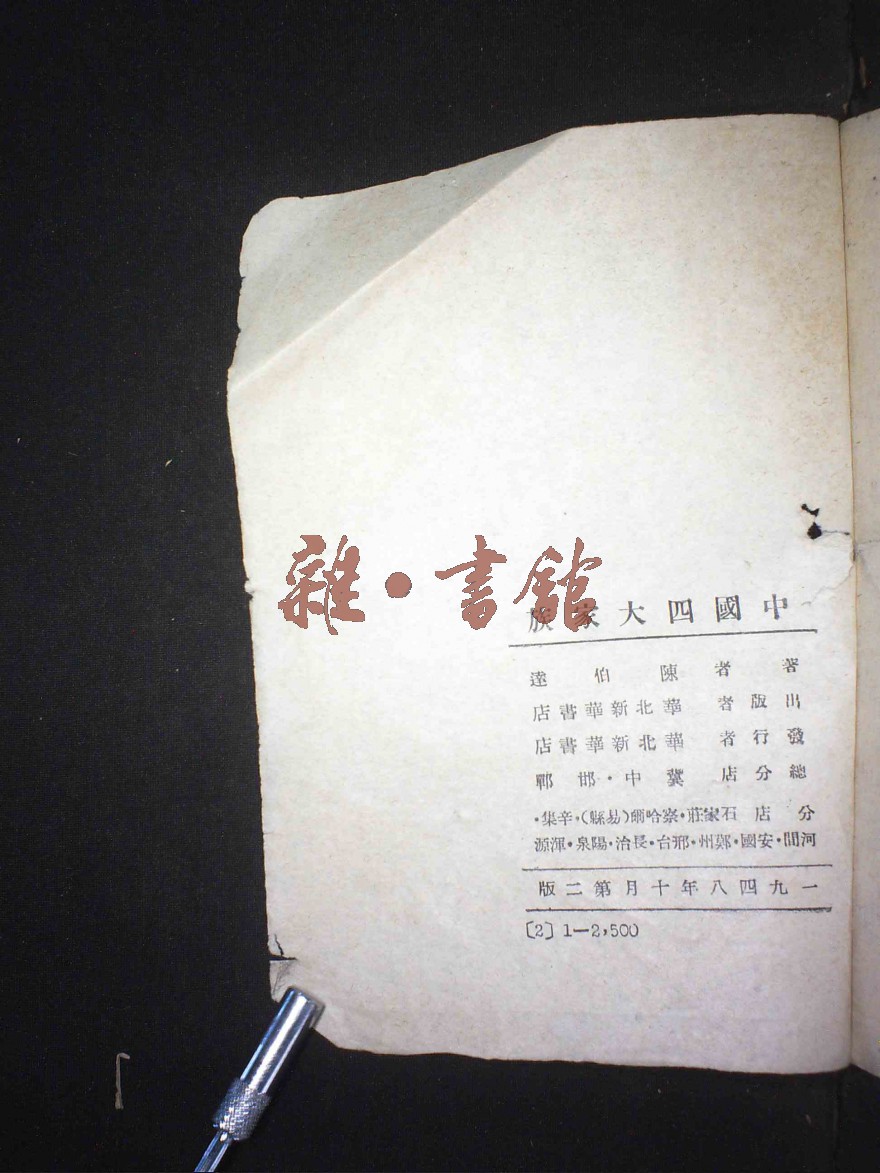 雜·書館
中國四大家族
著者 陳伯達
出版者 華北新華書店
發行者 華北新華書店
總分店 冀中·邯鄲
分店 石家莊·察哈爾(易縣)·辛集·
河間·安國·鄭州·邢台·長治·陽泉·渾源
一九四八年十月第二版
〔2〕1—2,500